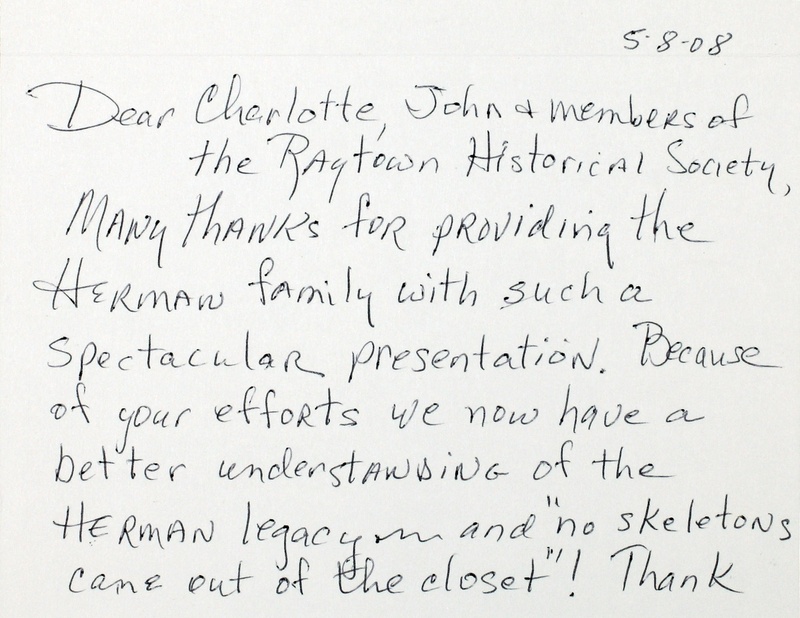 5-8-08
Dear Charlotte, John & members of
the Raytown Historical Society,
Many thanks for providing the
Herman family with such a
spectacular presentation. Because
of your efforts we now have a
better understanding of the
Herman legacy and "no skeletons
came out of the closet"! Thank